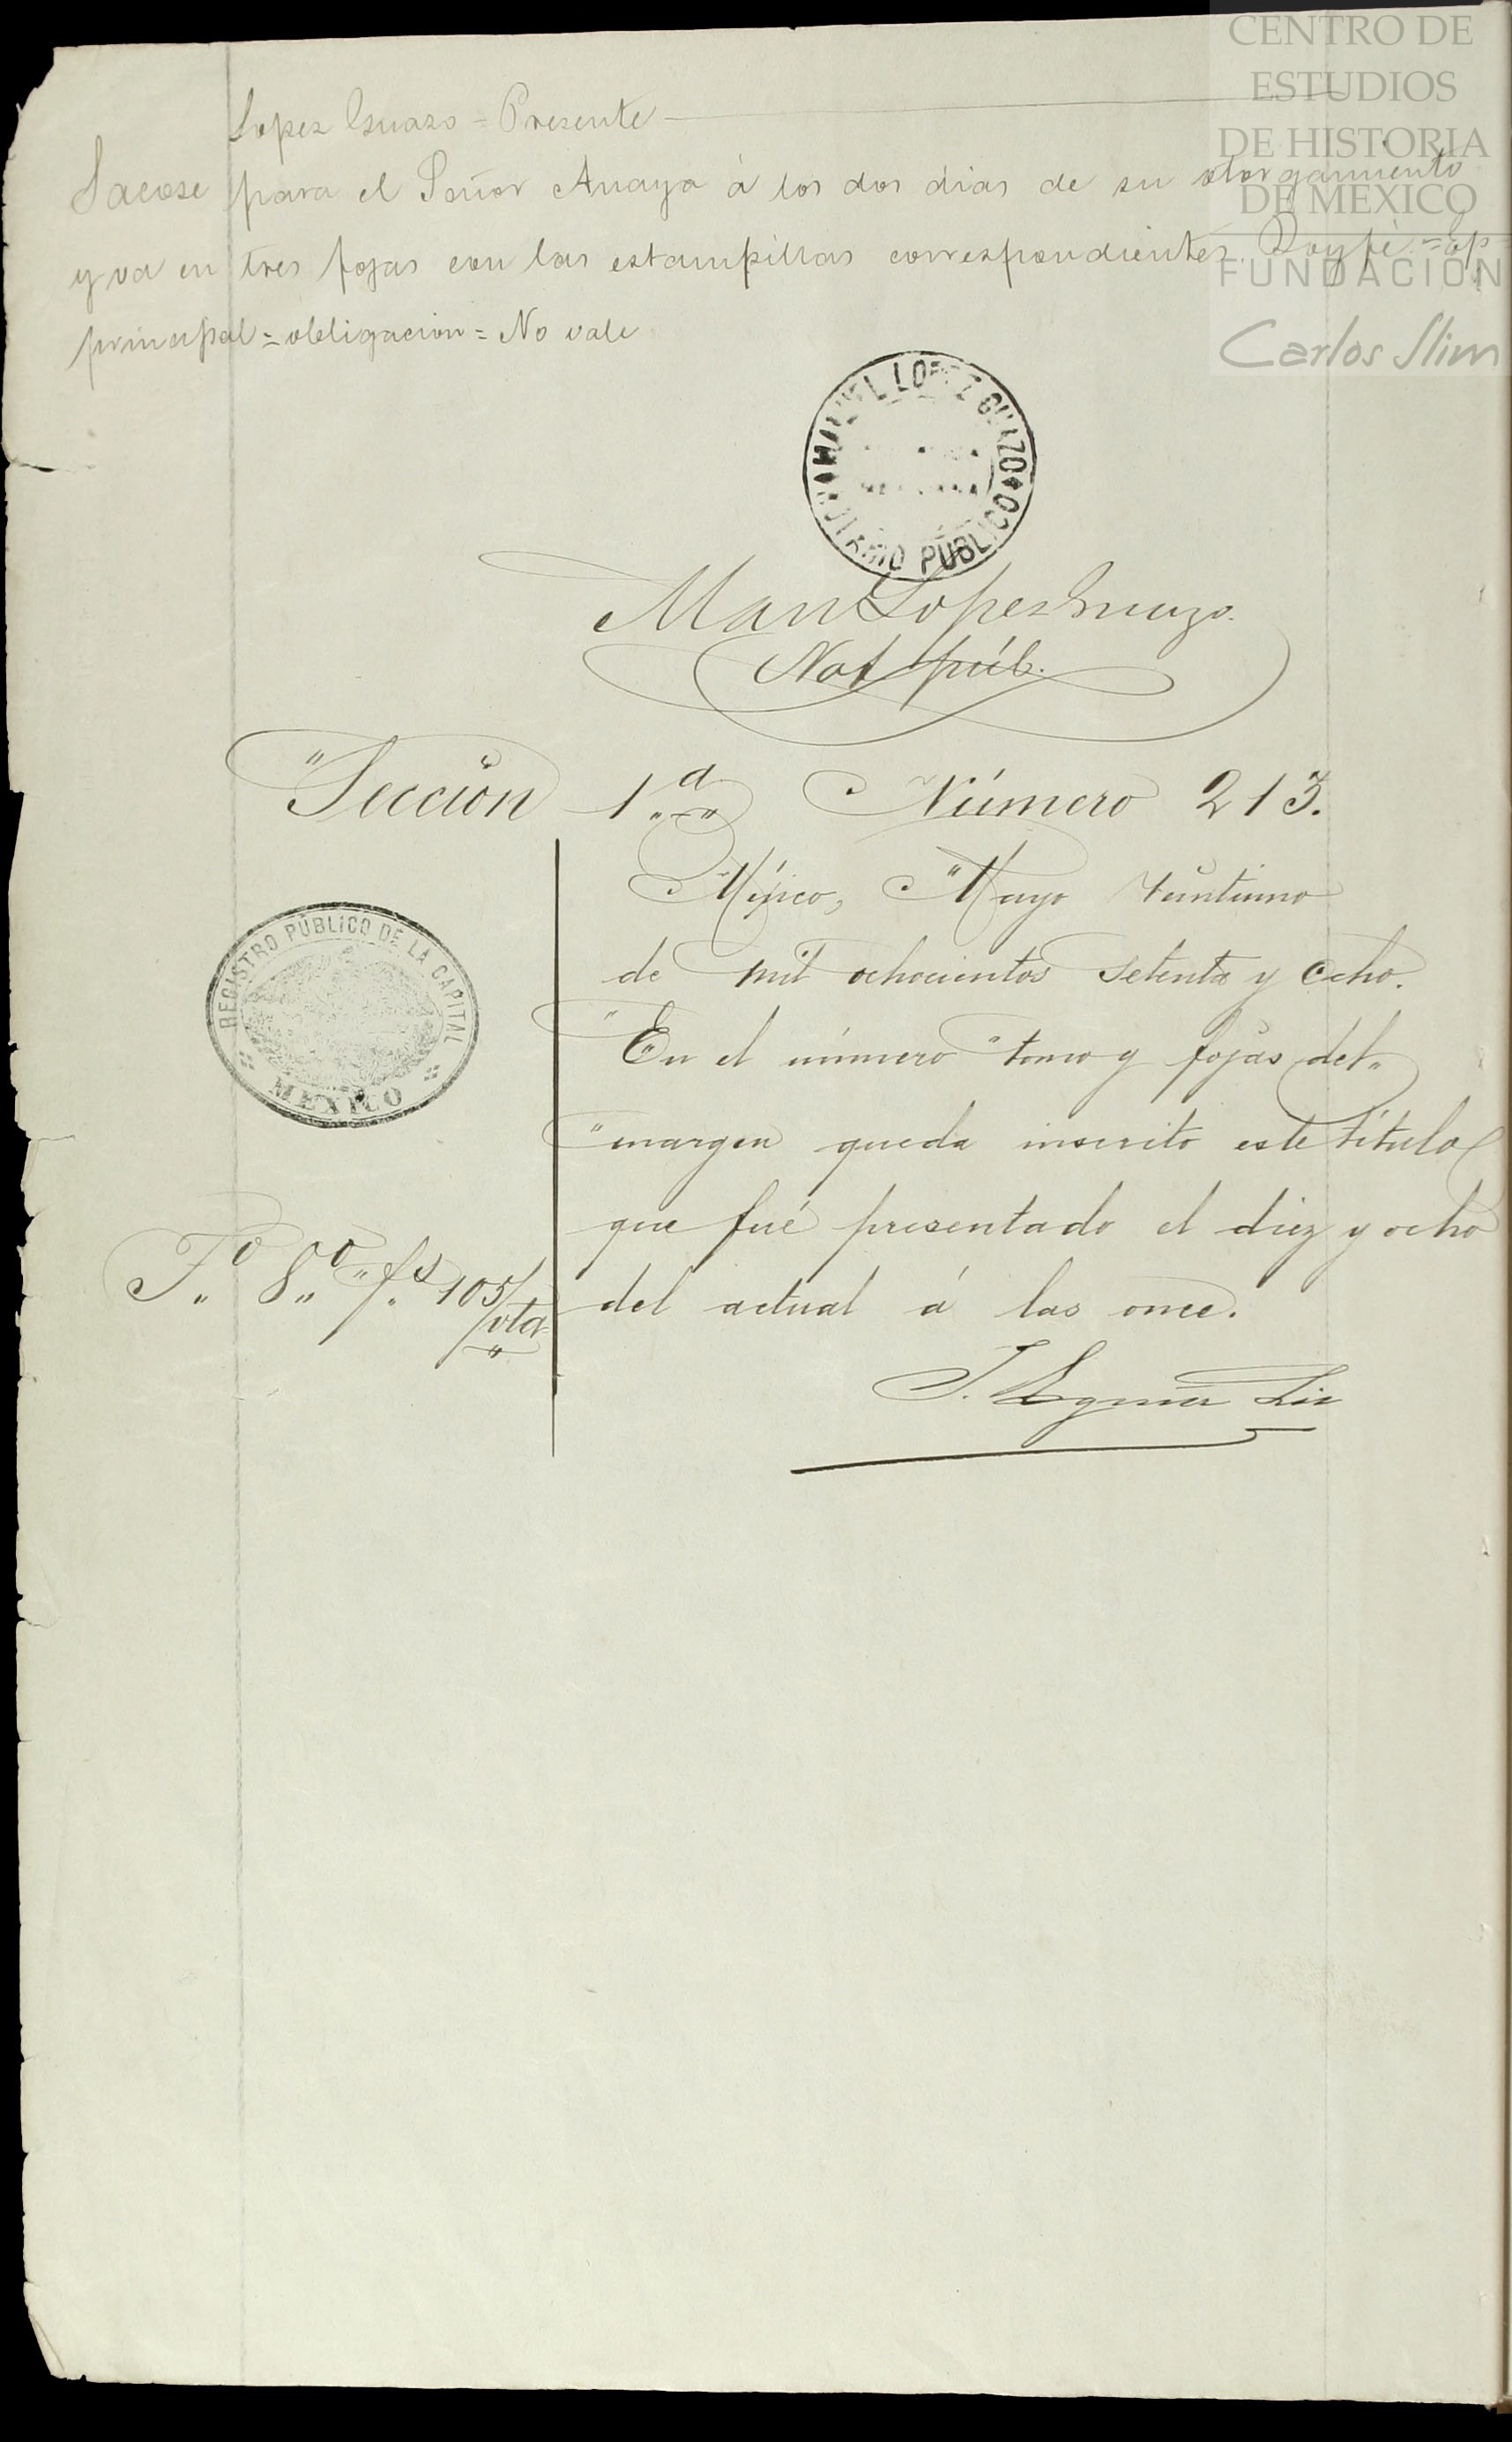 CENTRO DE
ESTUDIOS
DE HISTORIA
DE MEXICO
FUNDACIÓN
Carlos Slim
Lopez Guazo = Presente
Sacose para el Señor Anaya á los dos dias de su otorgamiento
y va en tres fojas con las estampillas correspondientes. Doy fé =
principal = obligacion = No vale
MANUEL LOPEZ GUAZO
NOTARIO PUBLICO
Man Lopez Guazo.
Not púb.
Sección 1.a Número 213.
Méjico, Mayo
de mil ochocientos setenta y ocho.
En el número tomo y fojas del
margen queda inscrito este título
que fué presentado el diez y ocho
del actual á las once.
REGISTRO PÚBLICO DE LA CAPITAL
MEXICO
T.o 8.o f.s 105
vta